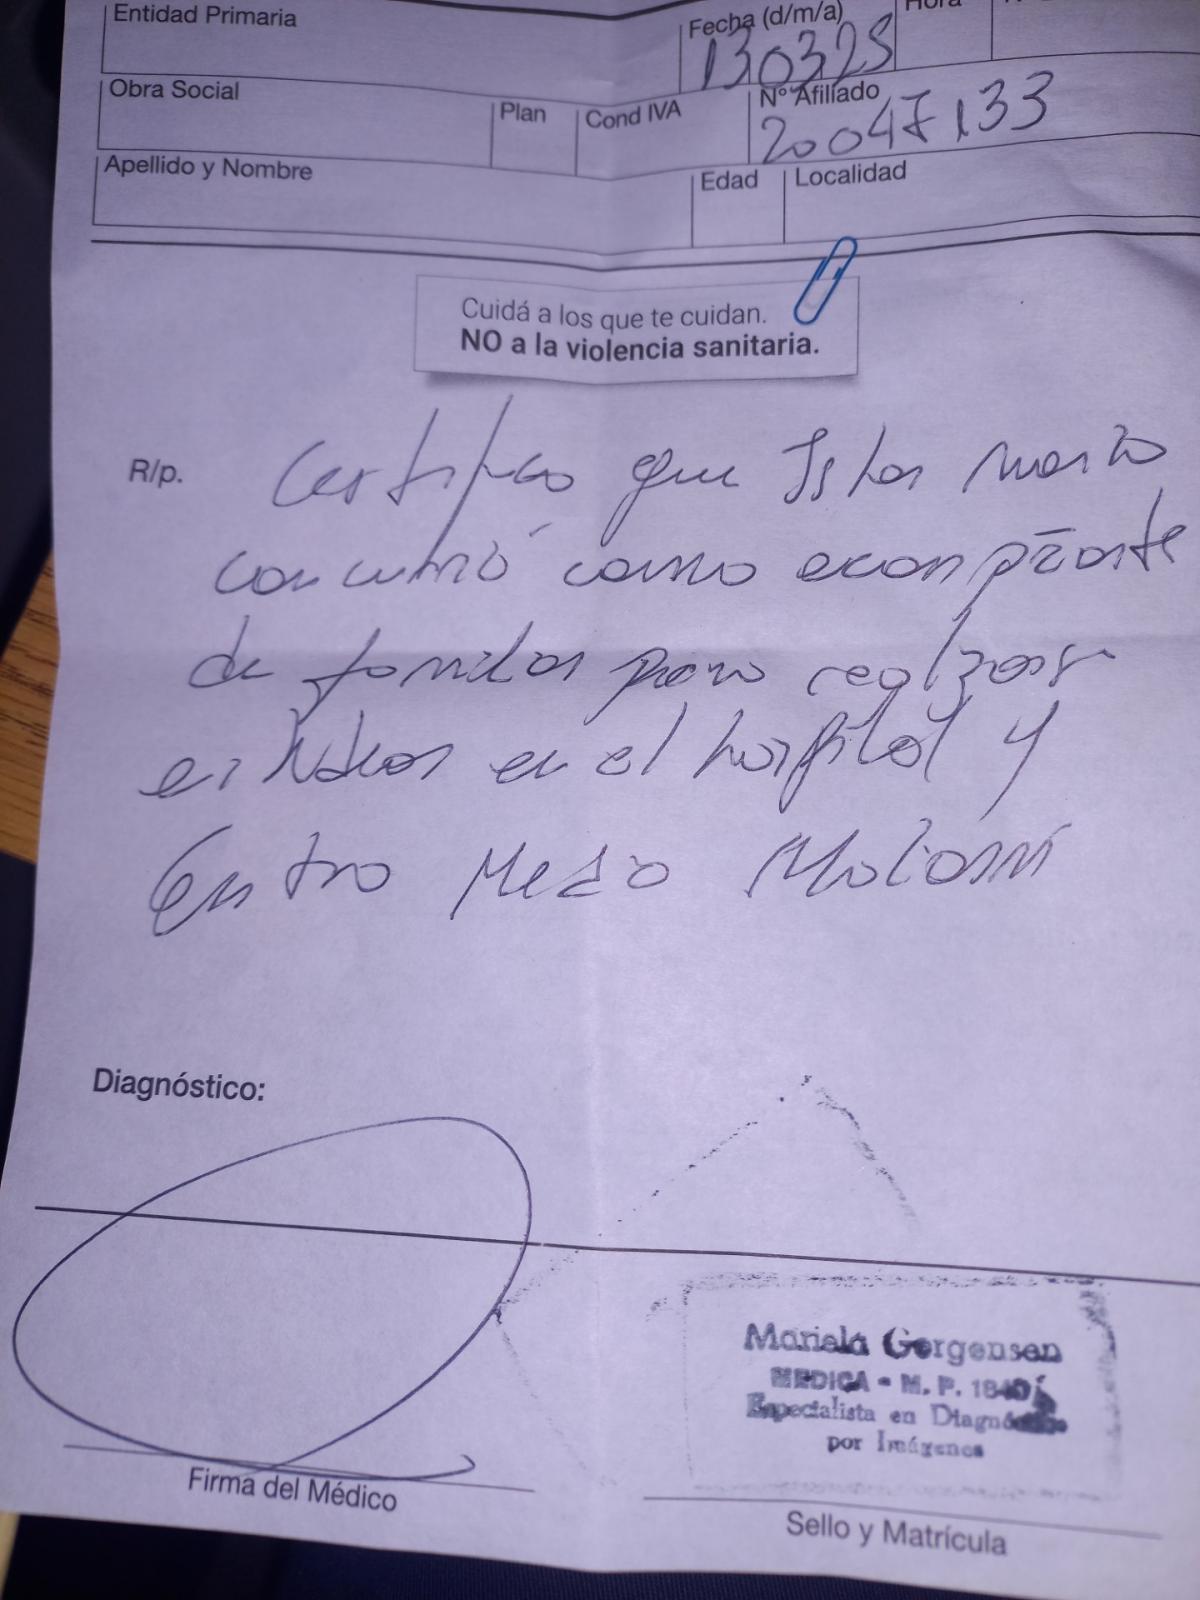 Entidad Primaria
Fecha (d/m/a)
130325
Obra Social
Plan
Cond IVA
N° Afiliado
20047133
Apellido y Nombre
Edad
Localidad
Cuidá a los que te cuidan.
NO a la violencia sanitaria.
R/p.
Certifico que
concurrió como
de para realizar
estudios en el hospital y
Diagnóstico:
Firma del Médico
Mariela Gergensen
MEDICA - M. P.
Especialista en Diagnóstico
por Imágenes
Sello y Matrícula